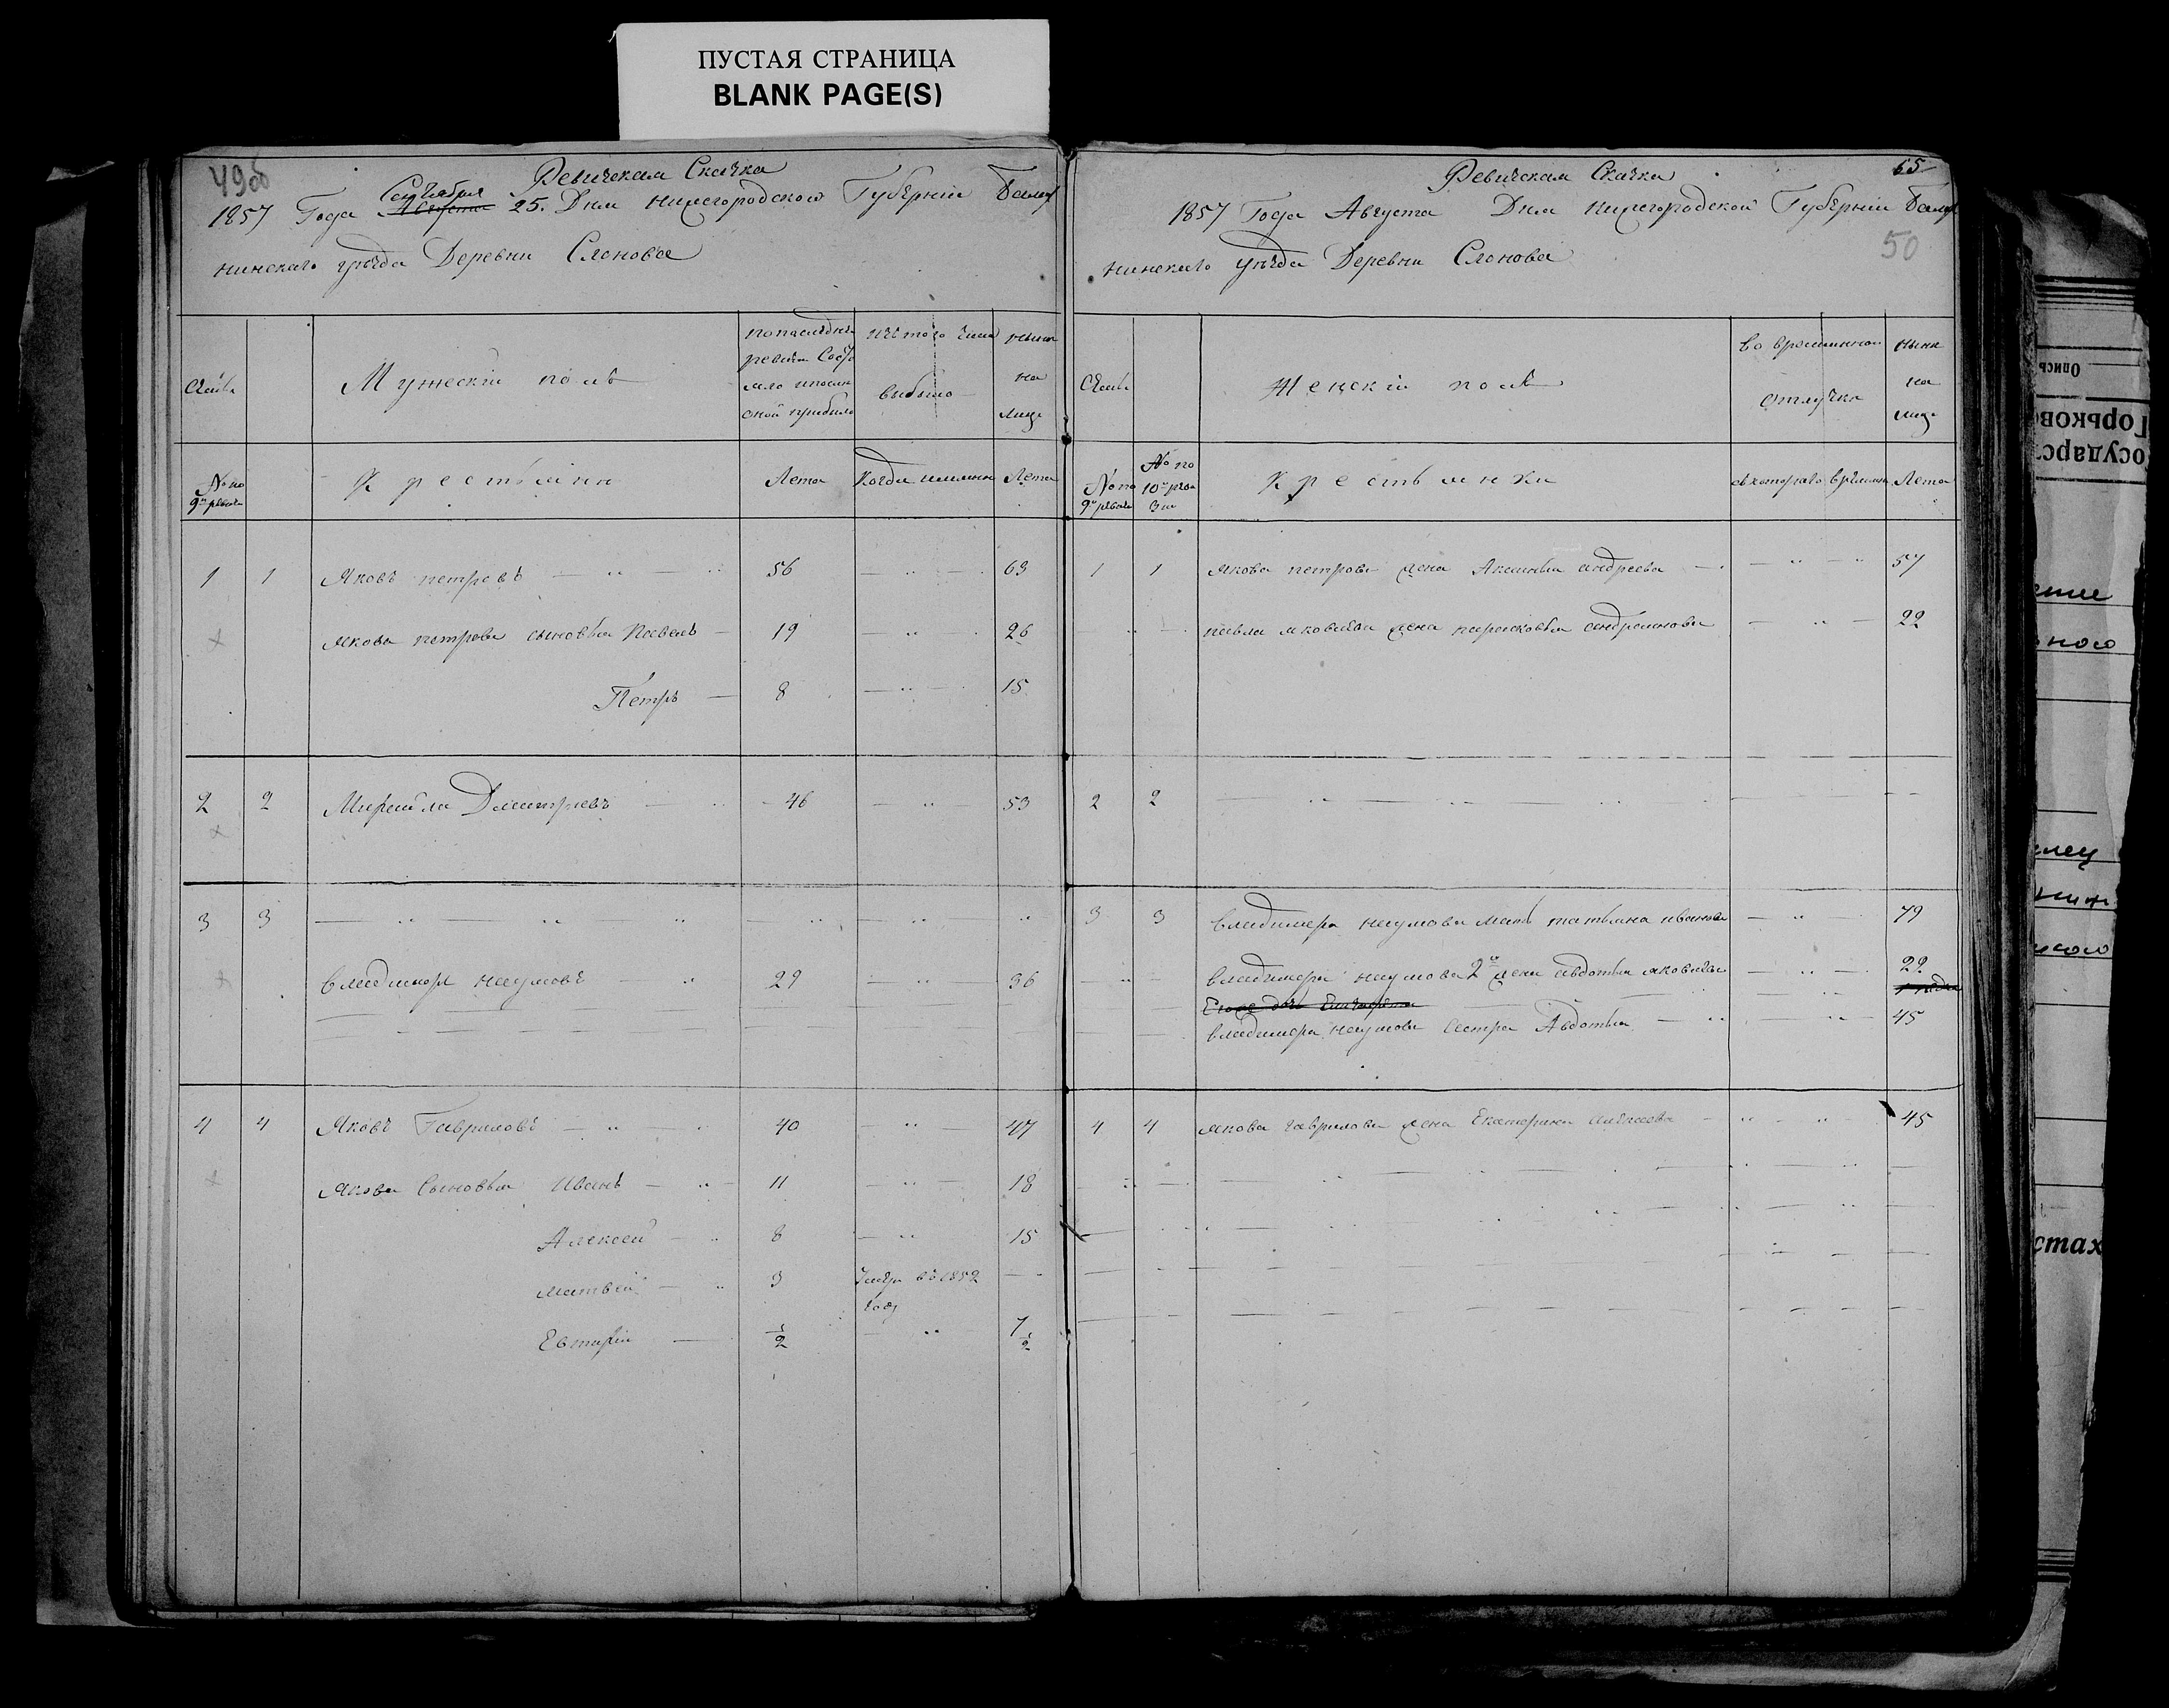 ПУСТАЯ СТРАНИЦА
BLANK PAGE(S)
49об
Ревичская Скачка
Сентября
1857 Года Августа 25. Дня нижегородской Губерніи Балах
нинскаго уѣзда Деревни Слонова
Мужескій полъ
попаслѣдней
ревизи Состо
яло ипосли
оной прибыло
изъ того числа
выбыло
ныни
на
лицо
№ по
9й ревизи
Крестьяни
Лета
Когда имянно
Лета
1 1 Яковъ петровъ 56 63
якова петрова сыновья Павелъ 19 26
Петръ 8 15
2 2 Михайла Дмитріевъ 46 53
3 3
владимеръ наумовъ 29 36
4 4 Яковъ Гавриловъ 40 47
якова Сыновья Иванъ 11 18
Алексей 8 15
матвей 3 Умеръ въ 1852
году
Евтифій 1/2 7 1/2
65
Ревичская Скачка
1857 Года Августа Дня нижегородской Губерніи Балах
50
нинскаго уѣзда Деревни Слонова
Женскій полъ
во временной
отлучки
ныни
на
лицо
№ по
9й ревизи
№ по
10й реви
зіи
Крестьянки
съ котораго времини
Лета
1 1 якова петрова жена Аксинья андреева 57
павла яковлева жена парасковья андреянова 22
2 2
3 3 владимера наумова мать татьяна иванова 79
владимера наумова 2я жена авдотья яковлева 22
владимера наумова Сестра Авдотья 45
4 4 якова гаврилова жена Екатерина алексеева 45
Опись
Горьков
осударс
стах